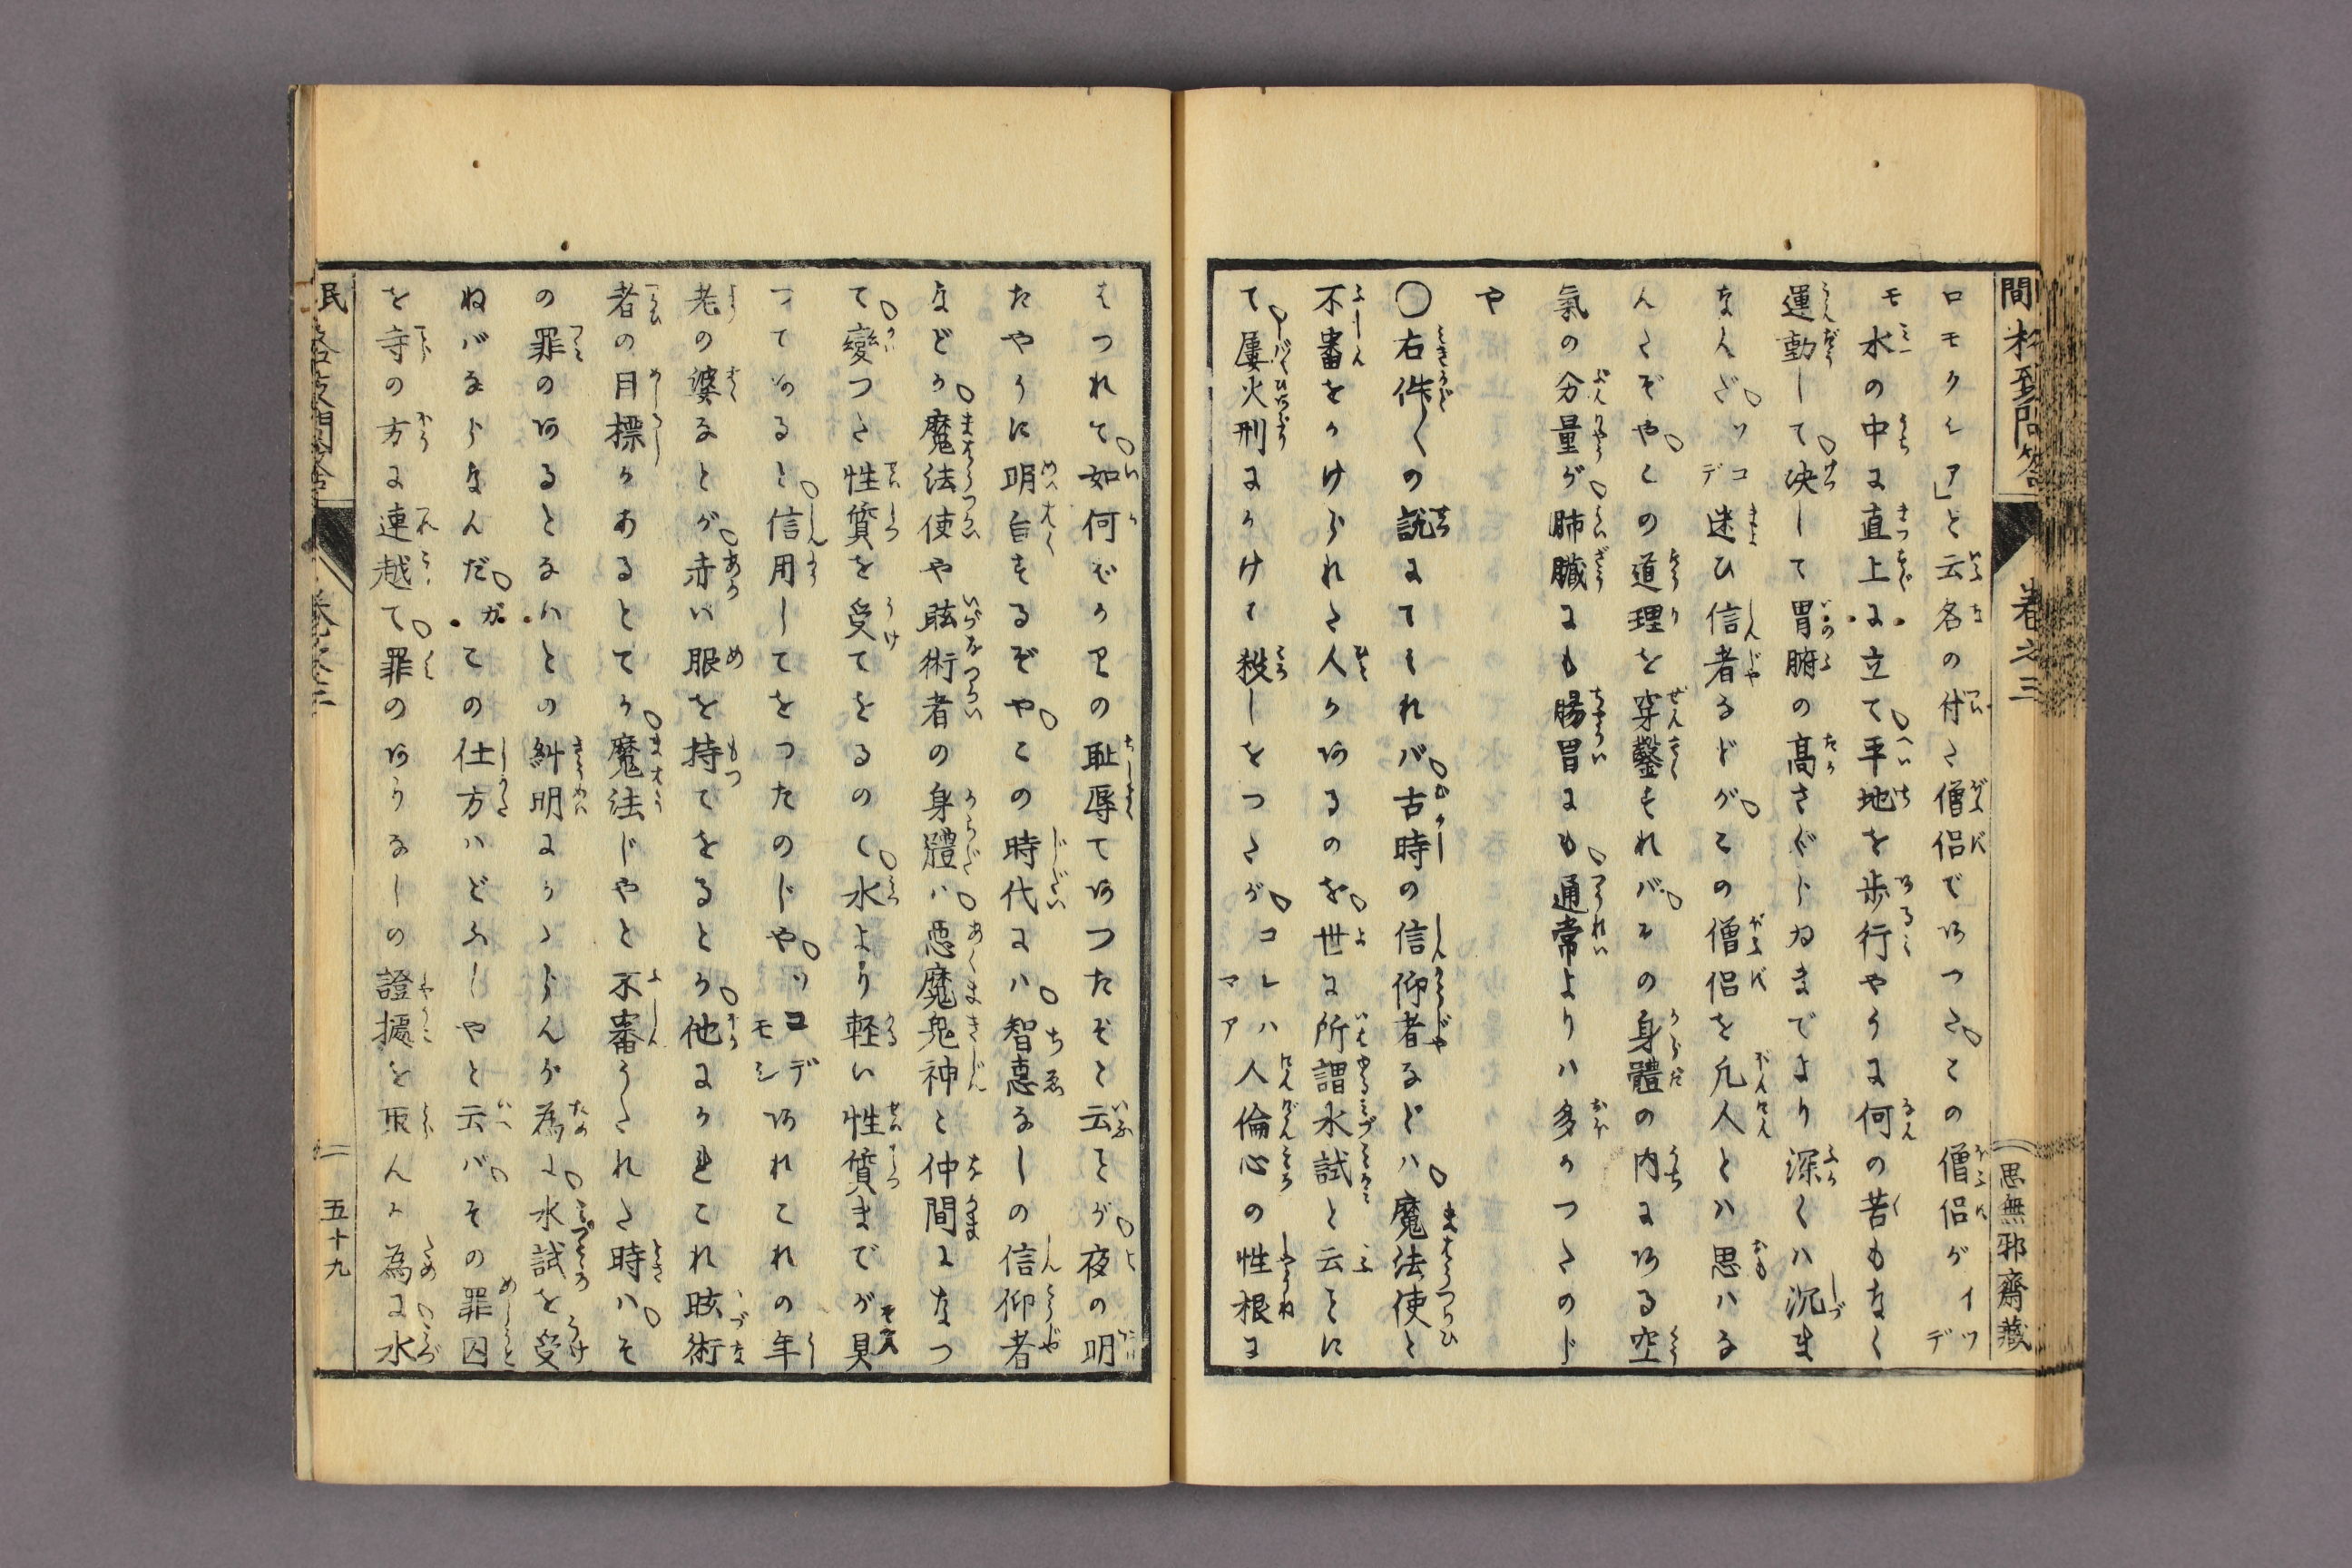 ロモクシア」と云名の付た僧侶であつた此の僧侶がイツデ
モ水の中に直上に立て平地を歩行やうに何の苦もなく
運動して决して胃腑の高さぐらゐまでより深くハ沉ま
なんだソコデ迷ひ信者などがこの僧侶を凡人とハ思ハな
んだぞやこの道理を穿鑿すれバその身體の内にある空
氣の分量が肺臓にも腸胃にも通常よりハ多かつたのじ
や
〇右件〱の説にてみれバ古時の信仰者などハ魔法使と
不審をかけられた人があるのを世に所謂水試と云ことに
て屡火刑にかけて殺しをつたがコレハマア人倫心の性根に
はづれて如何ばかりの耻辱であつたぞと云ことが夜の明
たやうに明白するぞやこの時代にハ智惠なしの信仰者
などが魔法使や眩術者の身體ハ惡魔鬼神と仲間になつ
て變つた性質を受てをるので水より軽い性質までが具
つてゐると信用してをつたのじやソコデモシあれこれの年
老の婆などが赤い眼を持てをるとか他にかれこれ眩術
者の目標があるとてか魔法じやと不審うたれた時ハそ
の罪のあるとないとの糾明にかゝらんが為に水試を受
ねバならなんだがこの仕方ハどふじやと云バその罪囚
を寺の方に連越て罪のありなしの證據を取んが為に水
間料致問答
卷之三
思無邪齋藏
五十九